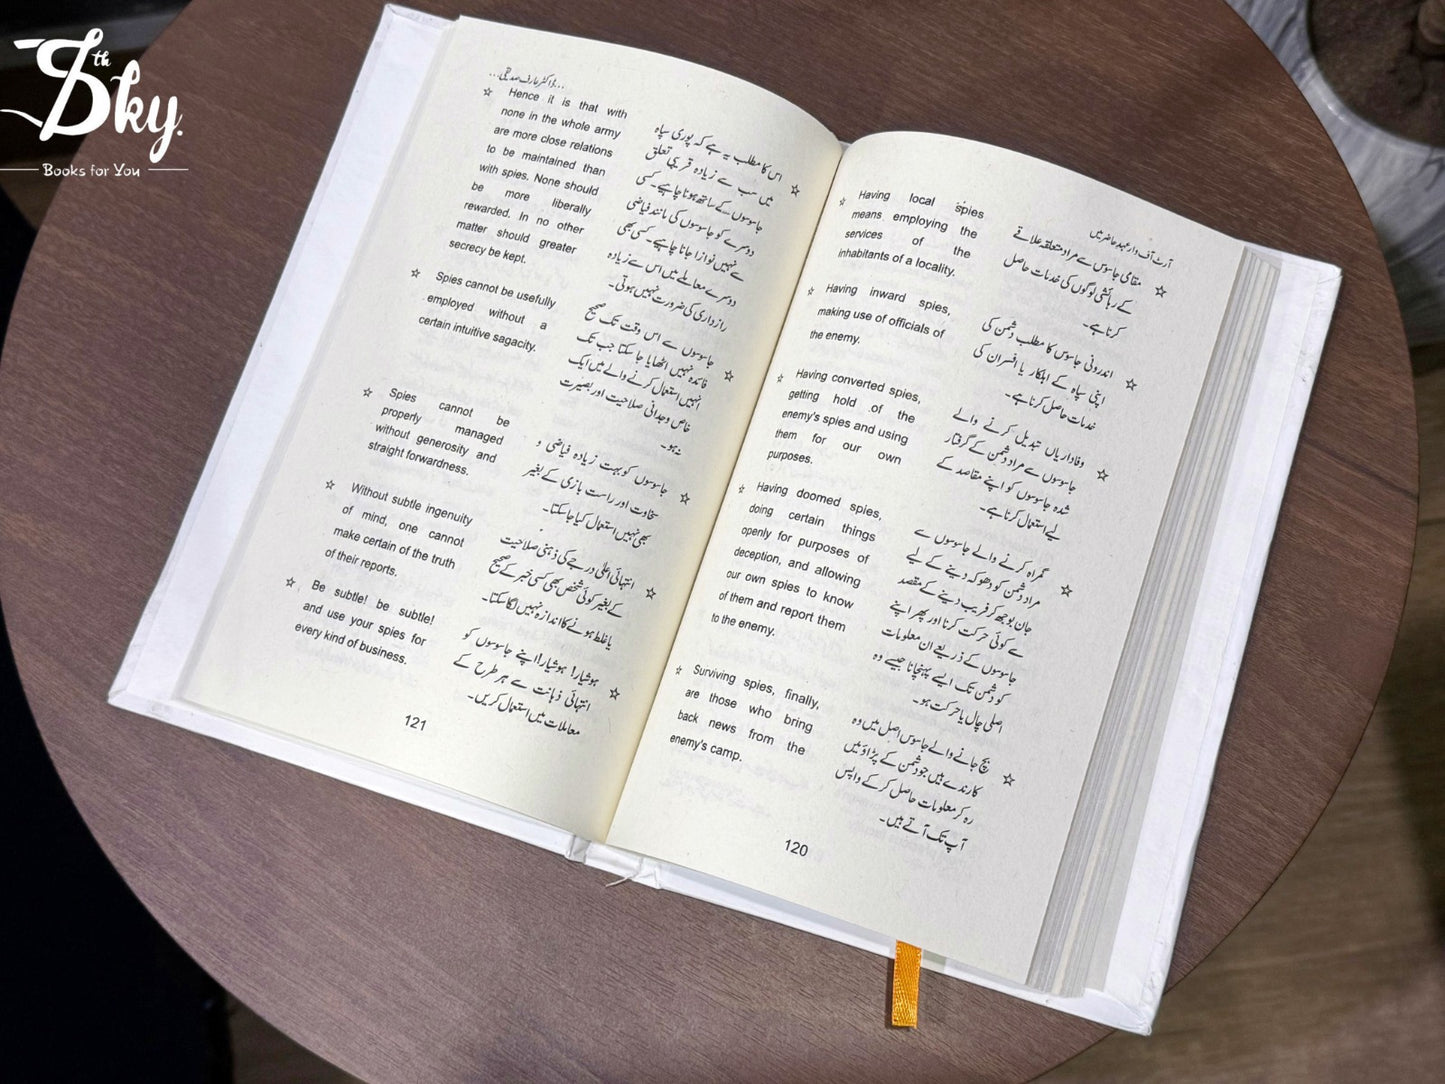 5th Sky.
Books for You
آرٹ آف وار عہد حاضر میں
☆ Having local spies
means employing the
services of the
inhabitants of a locality.
☆ Having inward spies,
making use of officials of
the enemy.
☆ Having converted spies,
getting hold of the
enemy's spies and using
them for our own
purposes.
☆ Having doomed spies,
doing certain things
openly for purposes of
deception, and allowing
our own spies to know
of them and report them
to the enemy.
☆ Surviving spies, finally,
are those who bring
back news from the
enemy's camp.
☆ مقامی جاسوس سے مراد متعلقہ علاقے
کے رہائشی لوگوں کی خدمات حاصل
کرنا ہے۔
☆ اندرونی جاسوس کا مطلب دشمن کی
اپنی سپاہ کے اہلکار یا افسران کی
خدمات حاصل کرنا ہے۔
☆ وفاداریاں تبدیل کرنے والے
جاسوس سے مراد دشمن کے گرفتار
شدہ جاسوسوں کو اپنے مقاصد کے
لیے استعمال کرنا ہے۔
☆ گمراہ کرنے والے جاسوس سے
مراد دشمن کو دھوکہ دینے کے لیے
جان بوجھ کر فریب دینے کے مقصد
سے کوئی حرکت کرنا اور پھر اپنے
جاسوس کے ذریعے ان معلومات
کو دشمن تک ایسے پہنچانا جیسے وہ
اصلی چال یا حرکت ہو۔
☆ بچ جانے والے جاسوس اصل میں وہ
کارندے ہیں جو دشمن کے پڑاؤ میں
رہ کر معلومات حاصل کر کے واپس
آپ تک آتے ہیں۔
120
...ڈاکٹر عارف صدیقی...
☆ Hence it is that with
none in the whole army
are more close relations
to be maintained than
with spies. None should
be more liberally
rewarded. In no other
matter should greater
secrecy be kept.
☆ Spies cannot be usefully
employed without a
certain intuitive sagacity.
☆ Spies cannot be
properly managed
without generosity and
straight forwardness.
☆ Without subtle ingenuity
of mind, one cannot
make certain of the truth
of their reports.
☆ Be subtle! be subtle!
and use your spies for
every kind of business.
☆ اس کا مطلب یہ ہے کہ پوری سپاہ
میں سب سے زیادہ قریبی تعلق
جاسوسوں کے ساتھ ہونا چاہیے۔ کسی
دوسرے کو جاسوسوں کی مانند فیاضی
سے نہیں نوازا جانا چاہیے۔ کسی بھی
دوسرے معاملے میں اس سے زیادہ
رازداری کی ضرورت نہیں ہوتی۔
☆ جاسوسوں سے اس وقت تک صحیح
فائدہ نہیں اٹھایا جا سکتا جب تک
انہیں استعمال کرنے والے میں ایک
خاص وجدانی صلاحیت اور بصیرت
نہ ہو۔
☆ جاسوسوں کو بہت زیادہ فیاضی و
سخاوت اور راست بازی کے بغیر
بھی نہیں استعمال کیا جا سکتا۔
☆ انتہائی اعلیٰ درجے کی ذہنی صلاحیت
کے بغیر کوئی شخص بھی کسی خبر کے صحیح
یا غلط ہونے کا اندازہ نہیں لگا سکتا۔
☆ ہوشیار! ہوشیار! اپنے جاسوسوں کو
انتہائی ذہانت سے ہر طرح کے
معاملات میں استعمال کریں۔
121